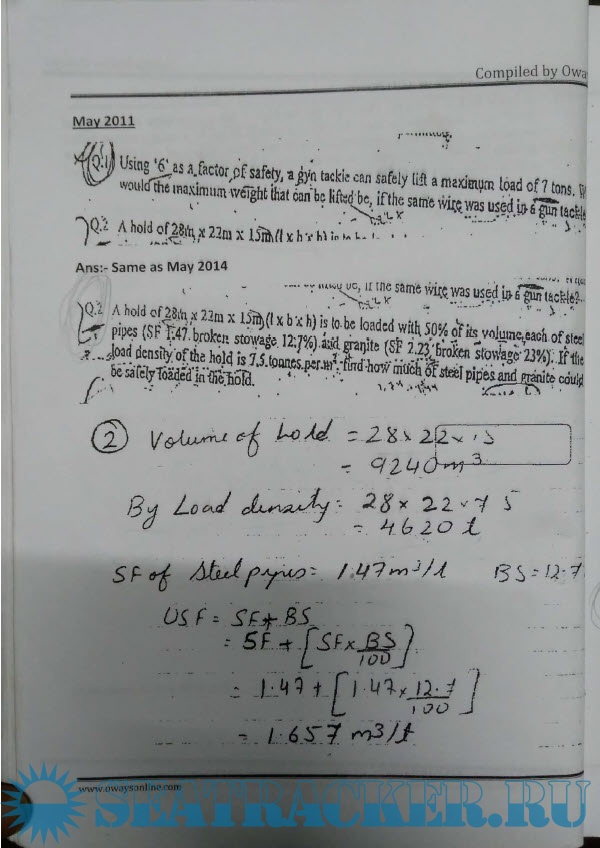 Compiled by Owa
May 2011
Q.1 Using '6' as a factor of safety, a gyn tackle can safely lift a maximum load of 7 tons. W
would the maximum weight that can be lifted be, if the same wire was used in a gun tackle
Q.2 A hold of 28m x 22m x 15m (l x b x h) is to be
Ans:- Same as May 2014
be, if the same wire was used in a gun tackle?
Q.2 A hold of 28m x 22m x 15m (l x b x h) is to be loaded with 50% of its volume, each of steel
pipes (SF 1.47 broken stowage 12.7%) and granite (SF 2.23, broken stowage 23%). If the
load density of the hold is 7.5 tonnes per m², find how much of steel pipes and granite could
be safely loaded in the hold.
2 Volume of hold = 28 x 22 x 15
= 9240 m3
By Load density = 28 x 22 x 7 5
= 4620 t
SF of Steel pipes = 1.47 m3/t BS = 12.7
USF = SF + BS
= SF + [SF x BS/100]
= 1.47 + [1.47 x 12.7/100]
= 1.657 m3/t
www.owaysonline.com
SEATRACKER.RU